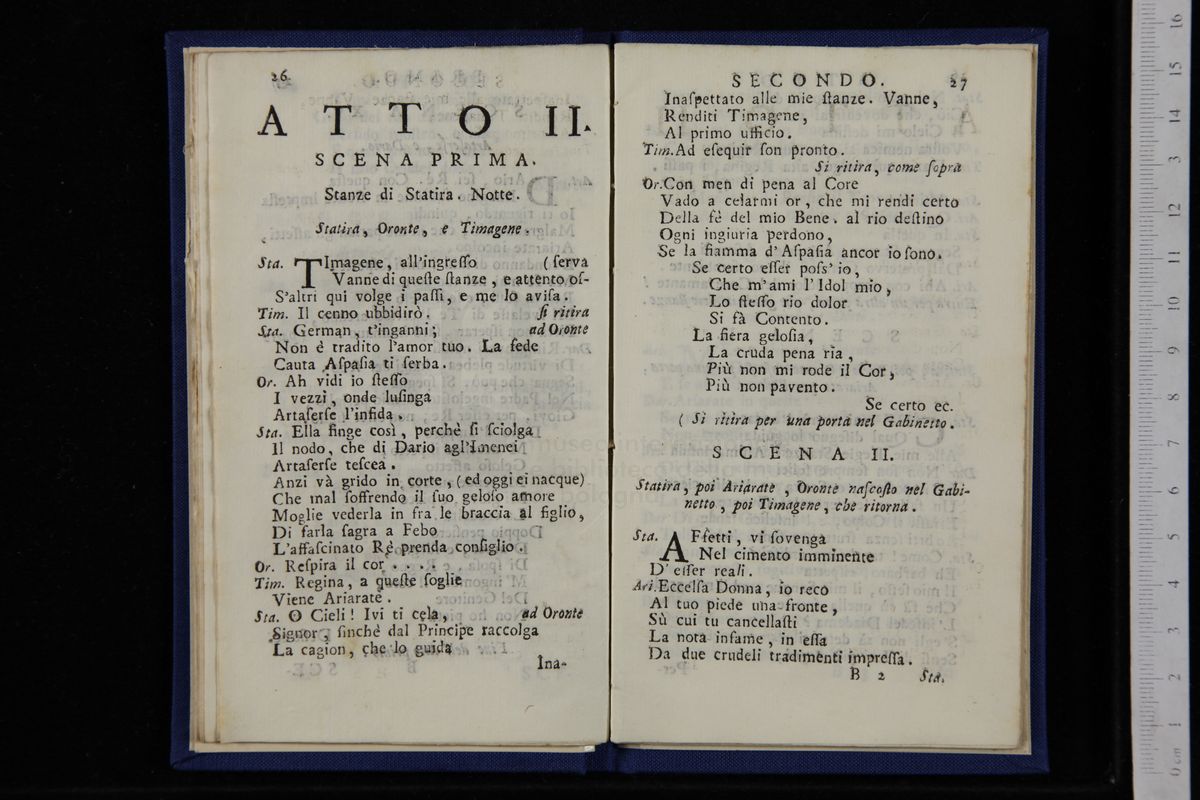 26.
ATTO II.
SCENA PRIMA.
Stanze di Statira. Notte.
Statira, Oronte, e Timagene.
Sta. TImagene, all'ingreſſo (ſerva
Vanne di queſte ſtanze, e attento oſ-
S'altri qui volge i paſſi, e me lo aviſa.
Tim. Il cenno ubbidirò. ſi ritira
Sta. German, t'inganni; ad Oronte
Non è tradito l'amor tuo. La fede
Cauta Aſpaſia ti ſerba.
Or. Ah vidi io ſteſſo
I vezzi, onde luſinga
Artaſerſe l'infida.
Sta. Ella finge così, perchè ſi ſciolga
Il nodo, che di Dario agl'Imenei
Artaſerſe teſcea.
Anzi và grido in corte, (ed oggi ei nacque)
Che mal ſoffrendo il ſuo geloſo amore
Moglie vederla in fra le braccia al figlio,
Di farla ſagra a Febo
L'affaſcinato Rè prenda conſiglio.
Or. Reſpira il cor ....
Tim. Regina, a queſte ſoglie
Viene Ariarate.
Sta. O Cieli! Ivi ti cela, ad Oronte
Signor, finchè dal Principe raccolga
La cagion, che lo guida
Ina-
SECONDO. 27
Inaſpettato alle mie ſtanze. Vanne,
Renditi Timagene,
Al primo ufficio.
Tim. Ad eſequir ſon pronto.
Si ritira, come ſopra
Or. Con men di pena al Core
Vado a celarmi or, che mi rendi certo
Della fè del mio Bene. al rio deſtino
Ogni ingiuria perdono,
Se la fiamma d'Aſpaſia ancor io ſono.
Se certo eſſer poſs'io,
Che m'ami l'Idol mio,
Lo ſteſſo rio dolor
Si fà Contento.
La fiera geloſia,
La cruda pena ria,
Più non mi rode il Cor,
Più non pavento.
Se certo ec.
( Si ritira per una porta nel Gabinetto.
SCENA II.
Statira, poi Ariarate, Oronte naſcoſto nel Gabi-
netto, poi Timagene, che ritorna.
Sta. AFfetti, vi ſovenga
Nel cimento imminente
D'eſſer reali.
Ari. Eccelſa Donna, io reco
Al tuo piede una fronte,
Sù cui tu cancellaſti
La nota infame, in eſſa
Da due crudeli tradimenti impreſſa.
B 2 Sta.
0 cm 1 2 3 4 5 6 7 8 9 10 11 12 13 14 15 16